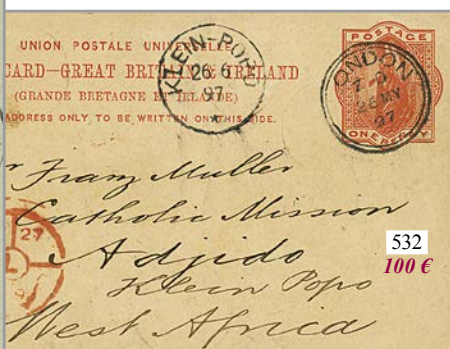 UNION POSTALE UNIVERSELLE
CARD—GREAT BRITAIN & IRELAND
(GRANDE BRETAGNE ET IRLANDE)
ADDRESS ONLY, TO BE WRITTEN ON THIS SIDE.
KLEIN-POPO
26.6
97
POSTAGE
ONE PENNY
LONDON
26 MY
97
Franz Muller
Catholic Mission
Adjido
Klein Popo
West Africa
27
532
100 €